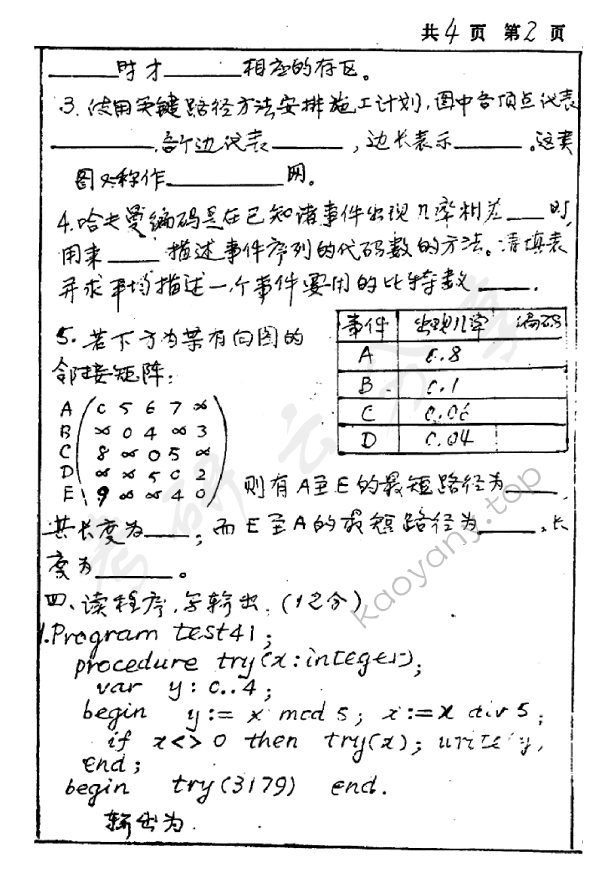 共4页 第2页
______时才______相应的存区。
3.使用关键路径方法安排施工计划,图中各顶点代表
______,各个边代表______,边长表示______。这类
图又称作______网。
4.哈夫曼编码是在已知诸事件出现几率相差___时,
用来____描述事件序列的代码数的方法。请填表
并求平均描述一个事件要用的比特数____.
5.若下方为某有向图的
邻接矩阵:
事件 出现几率 编码
A 0.8
B 0.1
C 0.06
D 0.04
A 0 5 6 7 ∞
B ∞ 0 4 ∞ 3
C 8 ∞ 0 5 ∞
D ∞ ∞ 5 0 2
E 9 ∞ ∞ 4 0
则有A至E的最短路径为____,
其长度为____;而E至A的最短路径为____,长
度为______。
四、读程序,写输出.(12分)
1.Program test41;
procedure try(x:integer);
var y:0..4;
begin y:= x mod 5; x:=x div 5;
if x<>0 then try(x); write(y)
end;
begin try(3179) end.
输出为
考研云分享
kaoyany.top